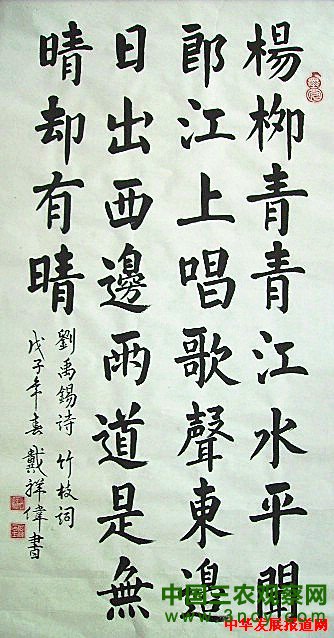 楊柳青青江水平聞
郎江上唱歌聲東邉
日出西邊雨道是無
晴却有晴
劉禹錫诗 竹枝词
戊子年春 戴祥偉書
中国三农观察网
中华发展报道网